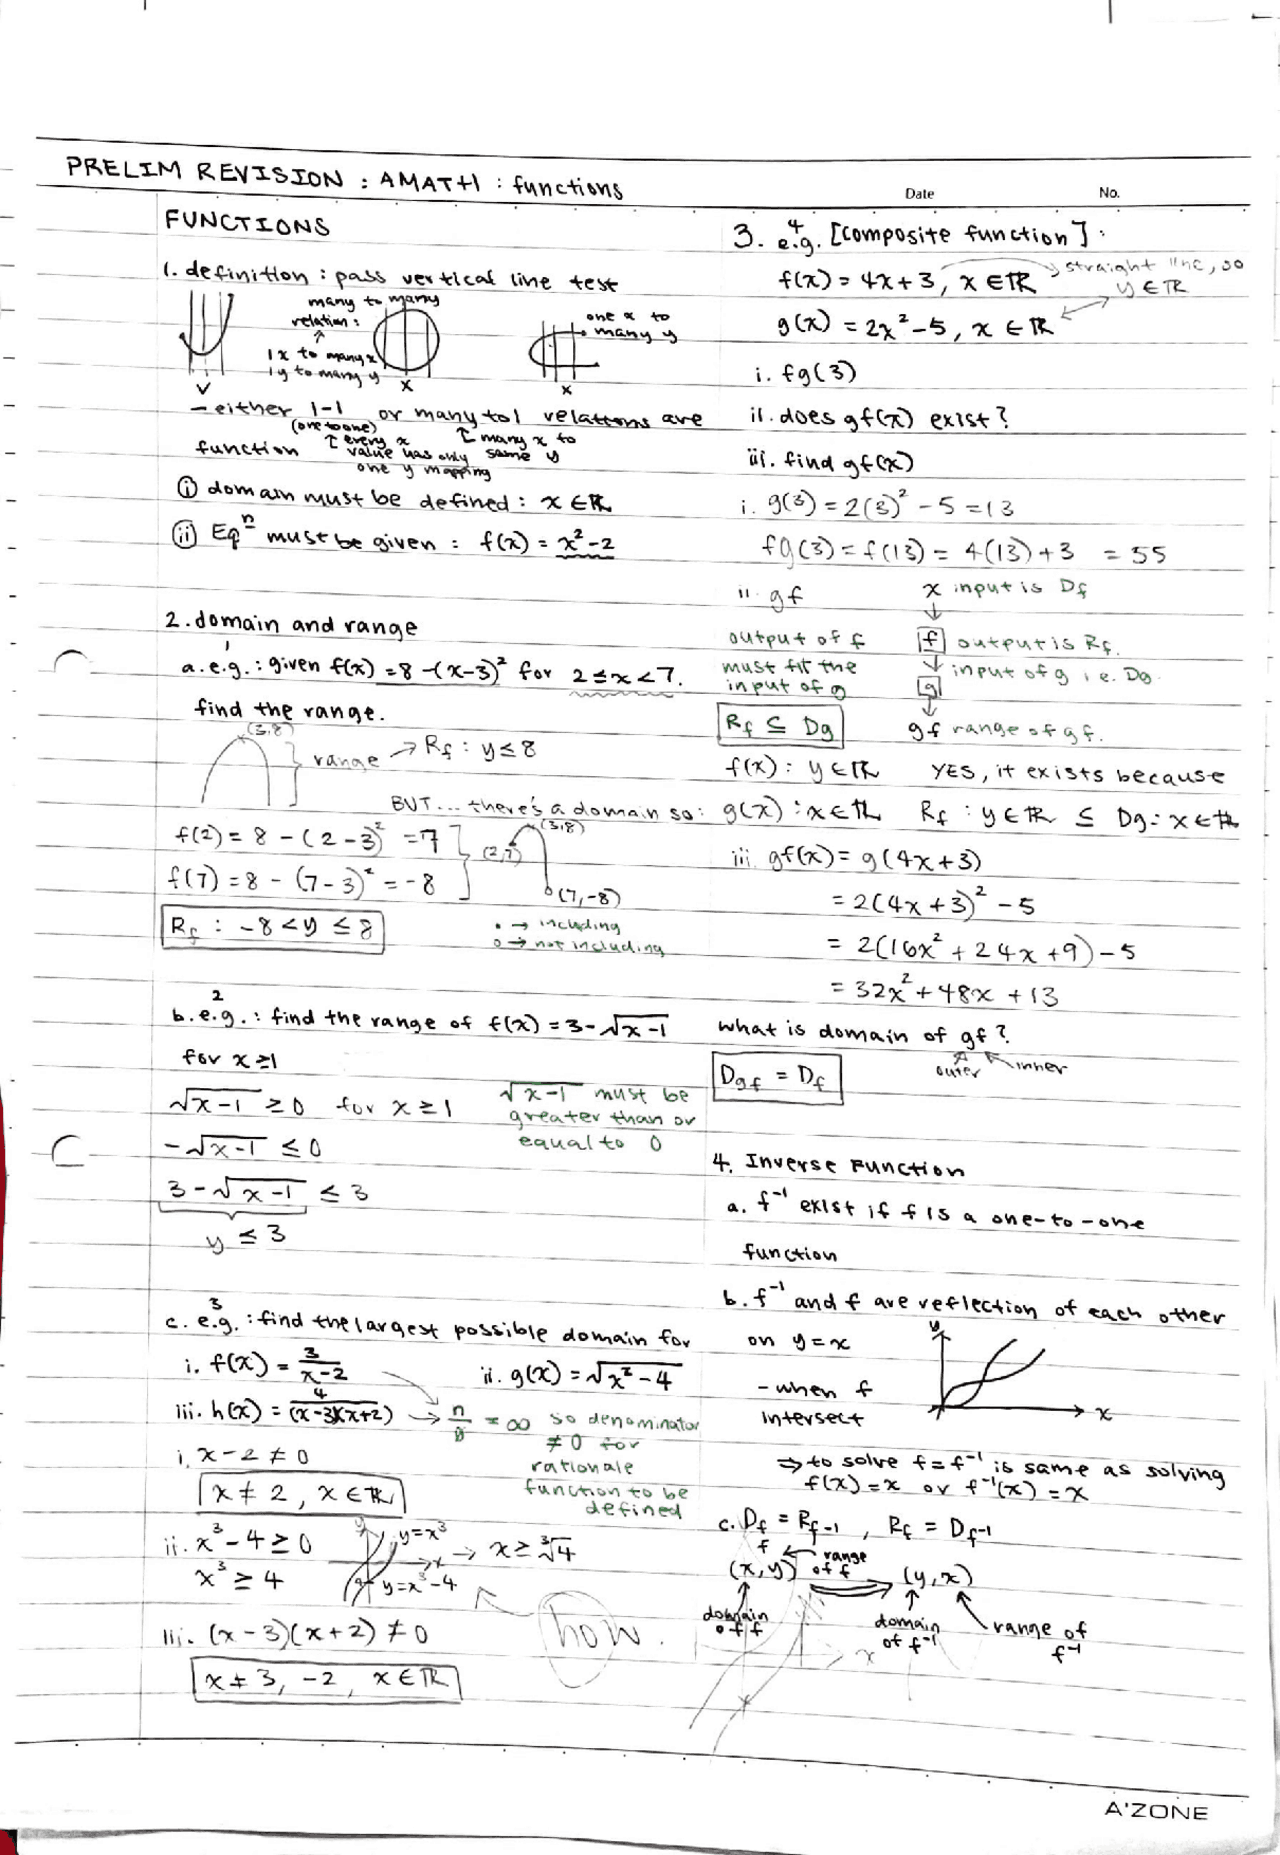 PRELIM REVISION : AMATH : functions
Date
No.
FUNCTIONS
1. definition : pass vertical line test
many to many
relation :
1 x to many x
1 y to many y
one x to
many y
- either 1-1 or many to 1 relations are
(one to one)
↑ every x
value has only
one y mapping
↑ many x to
same y
function
(i) domain must be defined : x ∈ ℝ
(ii) Eqⁿ must be given : f(x) = x² - 2
2. domain and range
a. e.g.¹ : given f(x) = 8 - (x-3)² for 2 ≤ x < 7.
find the range.
(3,8)
range → Rf : y ≤ 8
BUT... there's a domain so :
f(2) = 8 - (2-3)² = 7
f(7) = 8 - (7-3)² = -8
(2,7)
(3,8)
(7,-8)
Rf : -8 < y ≤ 8
• → including
o → not including
b. e.g.² : find the range of f(x) = 3 - √x-1
for x ≥ 1
√x-1 ≥ 0 for x ≥ 1
√x-1 must be
greater than or
equal to 0
-√x-1 ≤ 0
3 - √x-1 ≤ 3
y ≤ 3
c. e.g.³ : find the largest possible domain for
i. f(x) = 3/x-2
ii. g(x) = √x³-4
iii. h(x) = 4/(x-3)(x+2) → n/0 = ∞ so denominator
≠ 0 for
rationale
function to be
defined
i. x - 2 ≠ 0
x ≠ 2, x ∈ ℝ
ii. x³ - 4 ≥ 0
x³ ≥ 4
y
y = x³
x
y = x³ - 4
→ x ≥ ∛4
how.
iii. (x-3)(x+2) ≠ 0
x ≠ 3, -2, x ∈ ℝ
3. e.g.⁴ [composite function] :
f(x) = 4x + 3, x ∈ ℝ
straight line, so
y ∈ ℝ
g(x) = 2x² - 5, x ∈ ℝ
i. fg(3)
ii. does gf(x) exist?
iii. find gf(x)
i. g(3) = 2(3)² - 5 = 13
fg(3) = f(13) = 4(13) + 3 = 55
ii. gf
output of f
must fit the
input of g
Rf ⊆ Dg
x input is Df
f output is Rf.
input of g i.e. Dg.
g
gf range of gf.
f(x) : y ∈ ℝ YES, it exists because
g(x) : x ∈ ℝ Rf : y ∈ ℝ ⊆ Dg : x ∈ ℝ
iii. gf(x) = g(4x+3)
= 2(4x+3)² - 5
= 2(16x² + 24x + 9) - 5
= 32x² + 48x + 13
what is domain of gf?
outer
inner
Dgf = Df
4. Inverse Function
a. f⁻¹ exist if f is a one-to-one
function
b. f⁻¹ and f are reflection of each other
on y = x
y
x
- when f
intersect
⇒ to solve f = f⁻¹ is same as solving
f(x) = x or f⁻¹(x) = x
c. Df = Rf⁻¹, Rf = Df⁻¹
f
(x, y)
range
of f
(y, x)
domain
of f
domain
of f⁻¹
range of
f⁻¹
x
A'ZONE